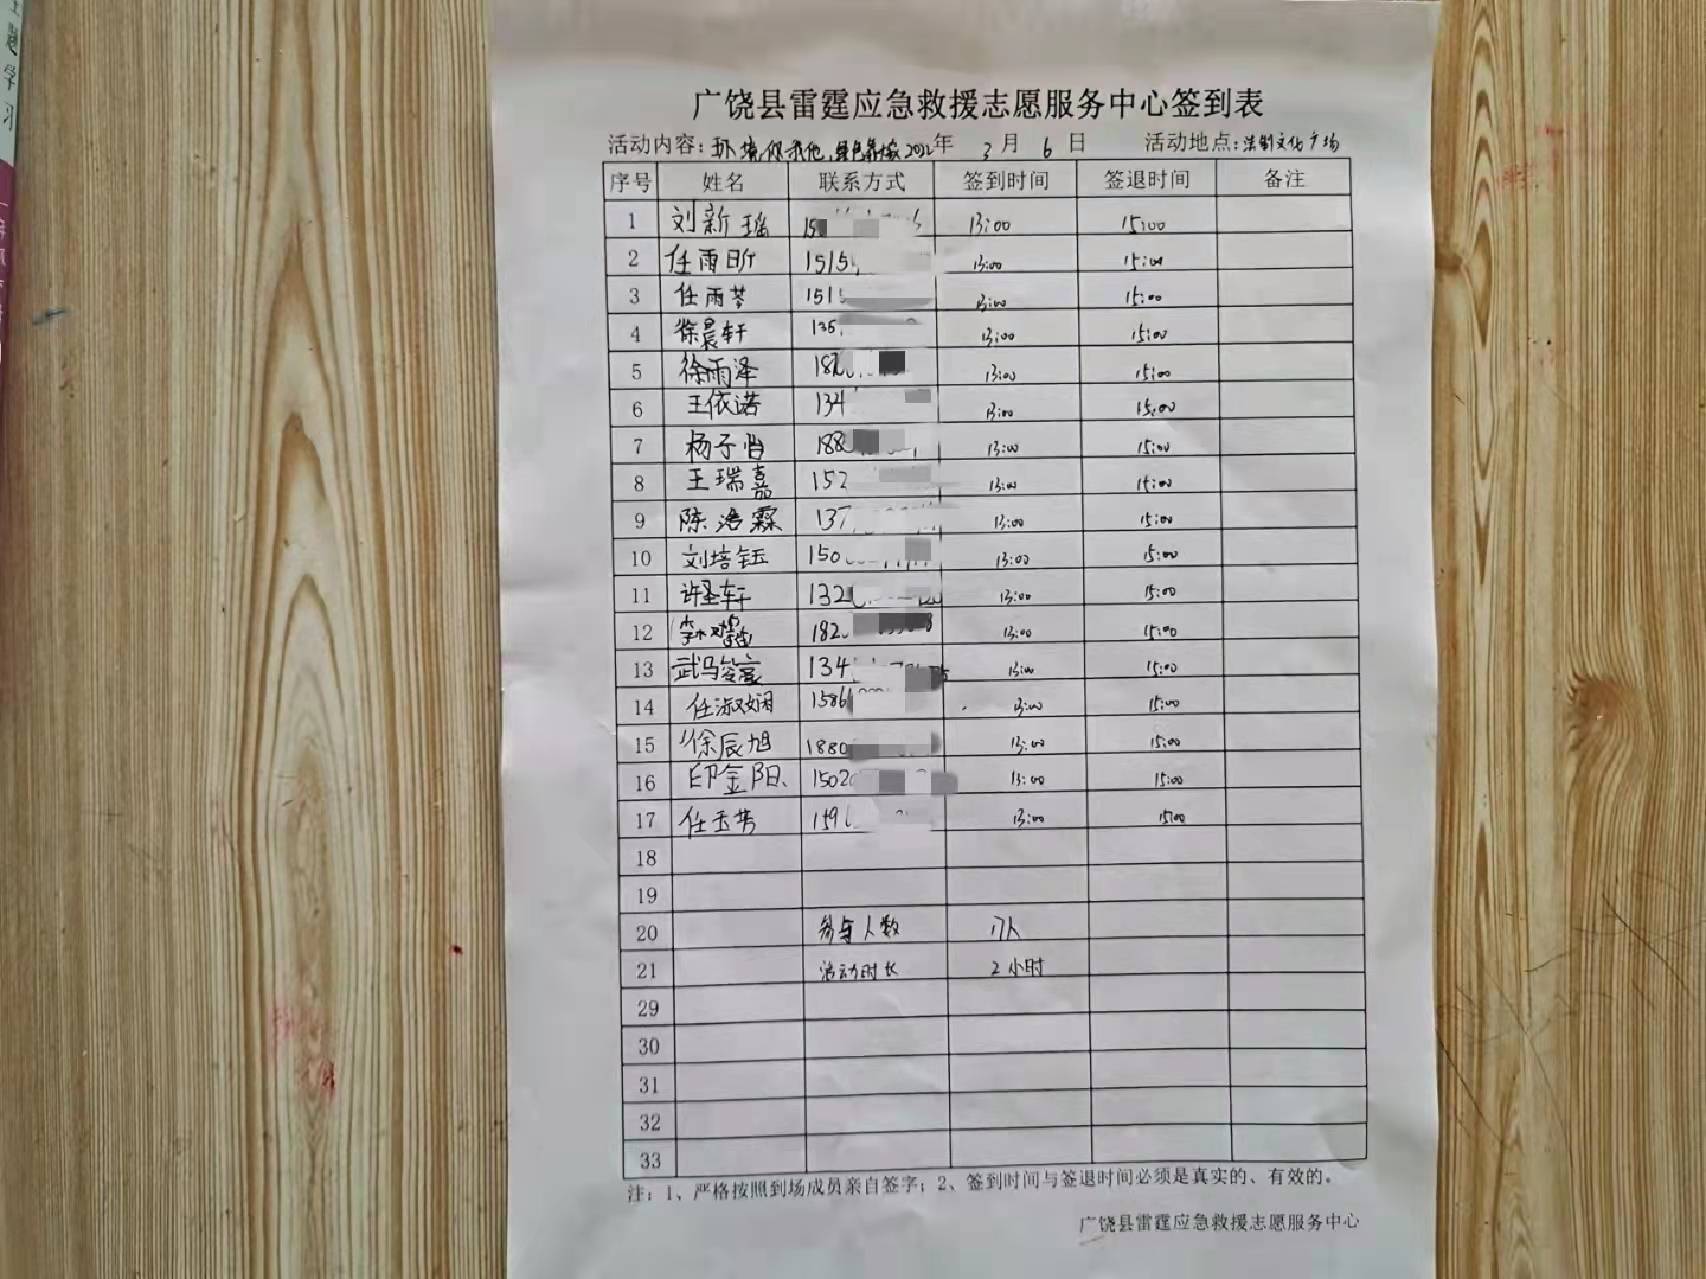 主题学习
广饶县雷霆应急救援志愿服务中心签到表
活动内容：环境你我他,绿色 2022年 3月 6日 活动地点：法制文化广场
序号 姓名 联系方式 签到时间 签退时间 备注
1 刘新瑶 150 13:00 15:00
2 任雨昕 1515 13:00 15:00
3 任雨苓 151 13:00 15:00
4 徐晨轩 135 13:00 15:00
5 徐雨泽 182 13:00 15:00
6 王依诺 134 13:00 15:00
7 杨子 188 13:00 15:00
8 王瑞嘉 152 13:00 15:00
9 陈浩霖 137 13:00 15:00
10 刘培钰 150 13:00 15:00
11 许圣轩 132 13:00 15:00
12 李 182 13:00 15:00
13 武马 134 13:00 15:00
14 任淑娴 1586 13:00 15:00
15 徐辰旭 1880 13:00 15:00
16 印金阳 1502 13:00 15:00
17 任玉芳 159 13:00 15:00
18
19
20 参与人数 17人
21 活动时长 2小时
29
30
31
32
33
注：1、严格按照到场成员亲自签字；2、签到时间与签退时间必须是真实的、有效的。
广饶县雷霆应急救援志愿服务中心